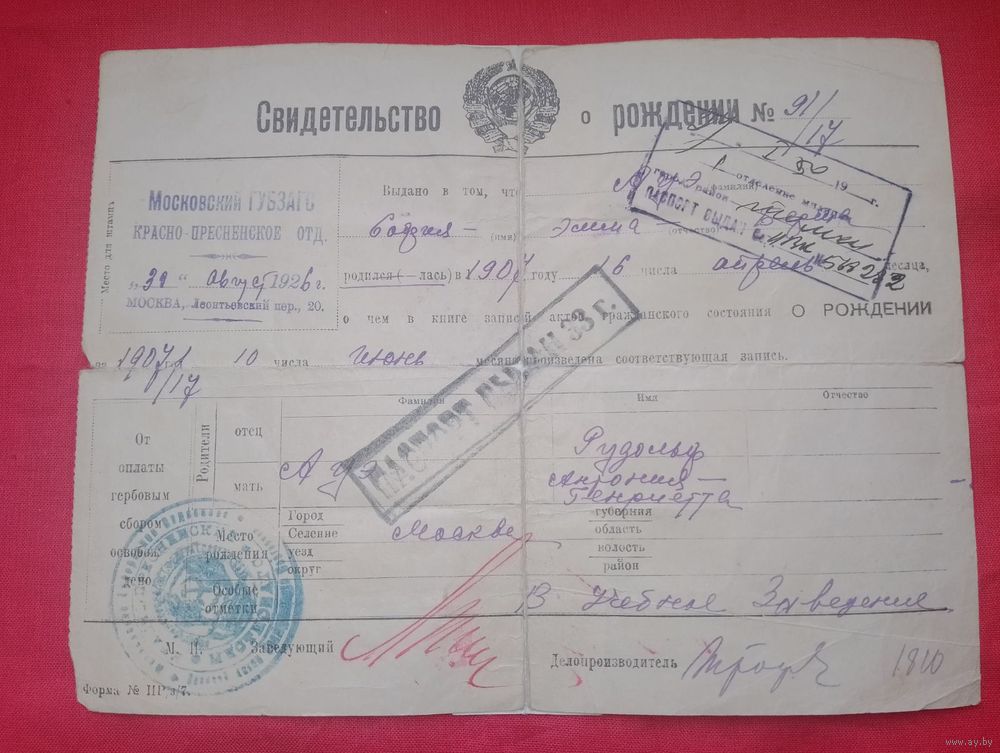 Свидетельство о рождении № 91/17
Место для штампа
Московский ГУБЗАГС
КРАСНО-ПРЕСНЕНСКОЕ ОТД.
"31" август 1926 г.
МОСКВА, Леонтьевский пер., 20.
Выдано в том, что
(фамилия)
София - (имя) Эмма (отчество)
родился (-лась) в 1907 году 16 числа апрель месяца,
о чем в книге записей актов гражданского состояния О РОЖДЕНИИ
за 1907 г. 10 числа июнь месяца произведена соответствующая запись.
/17
19 г.
отделение милиции
ПАСПОРТ ВЫДАН
ПАСПОРТ ВЫДАН 33 г.
Фамилия Имя Отчество
От оплаты гербовым сбором освобождено
Родители
отец Рудольф
мать Антония-
Генриетта
Место рождения
Город губерния
Селение Москва область
уезд волость
округ район
Особые отметки В Учебное Заведение
М. П. Заведующий
Делопроизводитель
1810
Форма № ПР з/7.
www.ay.by